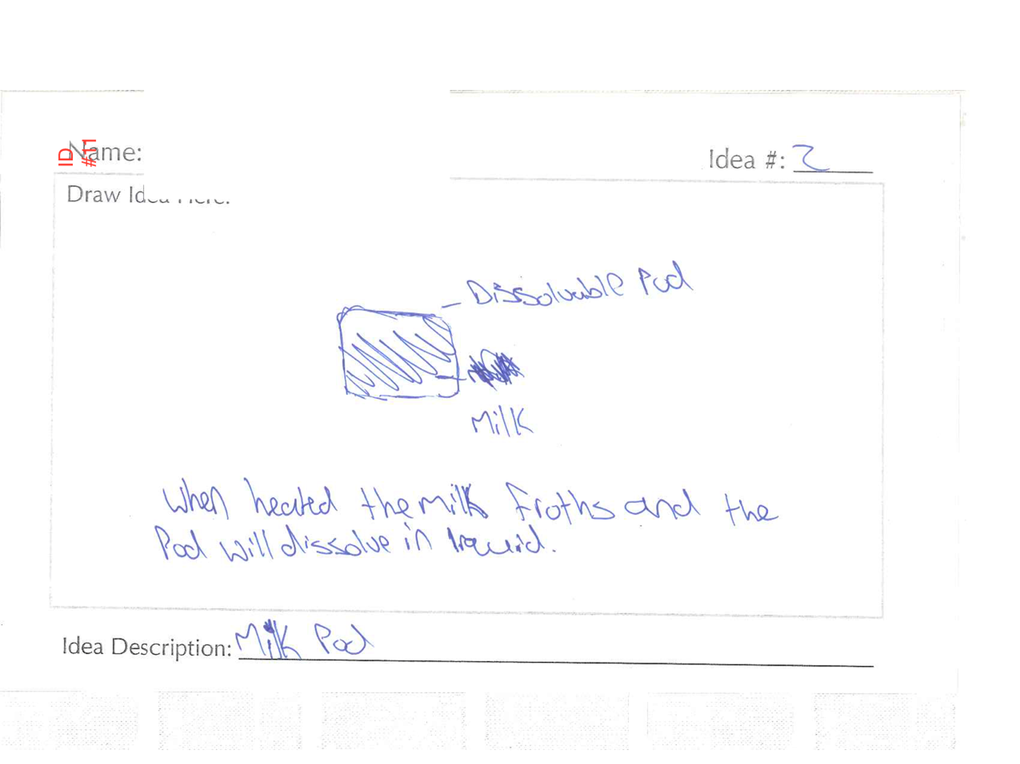 ID
#11
Name:
Idea #: 2
Draw Idea Here:
Dissolvable Pod
Milk
When heated the milk Froths and the
Pod will dissolve in liquid.
Idea Description: Milk Pod